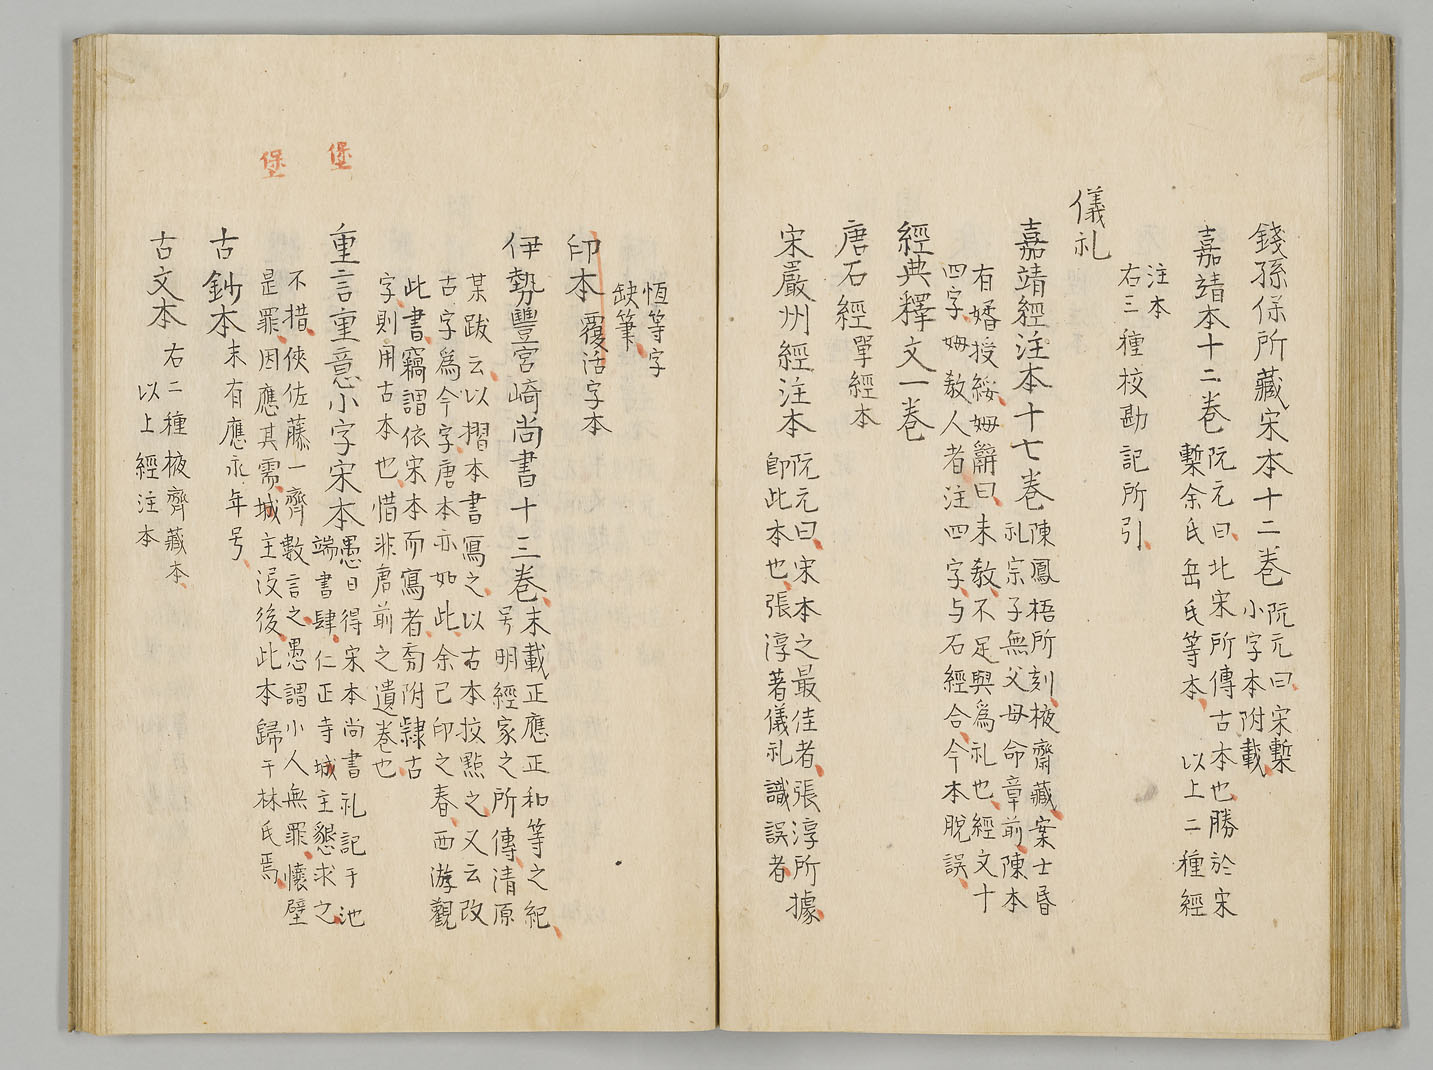 錢孫保所藏宋本十二巻 阮元曰宋槧
小字本附載
嘉靖本十二巻 阮元曰北宋所傳古本也勝於宋
槧余氏岳氏等本 以上二種經
注本
右三種校勘記所引
儀礼
嘉靖經注本十七巻 陳鳳梧所刻掖齋藏案士昏
礼宗子無父母命章前陳本
有婿授綏姆辭曰未教不足與為礼也經文十
四字姆教人者注四字与石經合今本脫誤
經典釋文一巻
唐石經單經本
宋嚴州經注本 阮元曰宋本之最佳者張淳所據
即此本也張淳著儀礼識誤者
恆等字
缺筆
印本 覆活字本
伊勢豐宮崎尚書十三巻 末載正應正和等之紀
号明經家之所傳清原
某跋云以摺本書寫之以古本挍點之又云改
古字爲今字唐本亦如此余已印之春西游觀
此書竊謂依宋本而寫者裔附隸古
字則用古本也惜非唐前之遺巻也
堡
重言重意小字宋本 愚日得宋本尚書礼記于池
端書肆仁正寺城主懇求之
不措俠佐藤一齊數言之愚謂小人無罪懷璧
是罪因應其需城主没後此本歸于林氏焉
堡
古鈔本 末有應永年号
古文本 右二種掖齊藏本
以上經注本